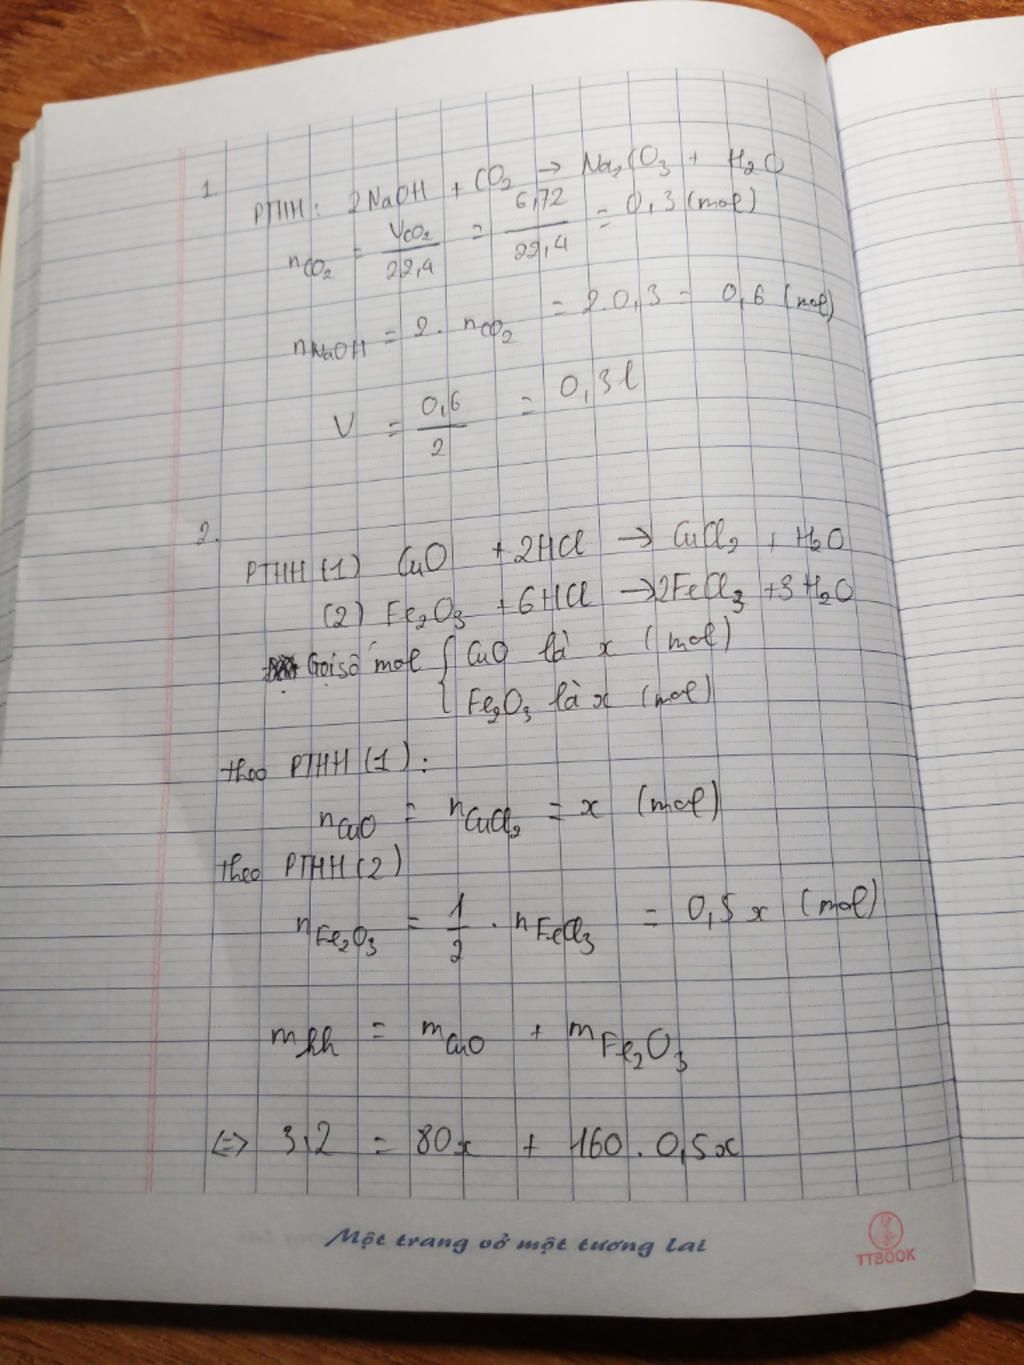 1.
PTHH: 2NaOH + CO₂ → Na₂CO₃ + H₂O
n_CO₂ = V_CO₂/22,4 = 6,72/22,4 = 0,3 (mol)
n_NaOH = 2. n_CO₂ = 2.0,3 = 0,6 (mol)
V = 0,6/2 = 0,3l
2.
PTHH (1) CuO + 2HCl → CuCl₂ + H₂O
(2) Fe₂O₃ + 6HCl → 2FeCl₃ + 3H₂O
Gọi số mol { CuO là x (mol)
Fe₂O₃ là x (mol)
theo PTHH (1) :
n_CuO = n_CuCl₂ = x (mol)
theo PTHH (2)
n_Fe₂O₃ = 1/2 . n_FeCl₃ = 0,5x (mol)
m_hh = m_CuO + m_Fe₂O₃
<=> 3,2 = 80x + 160 . 0,5x
Một trang vở một tương lai
TTBOOK